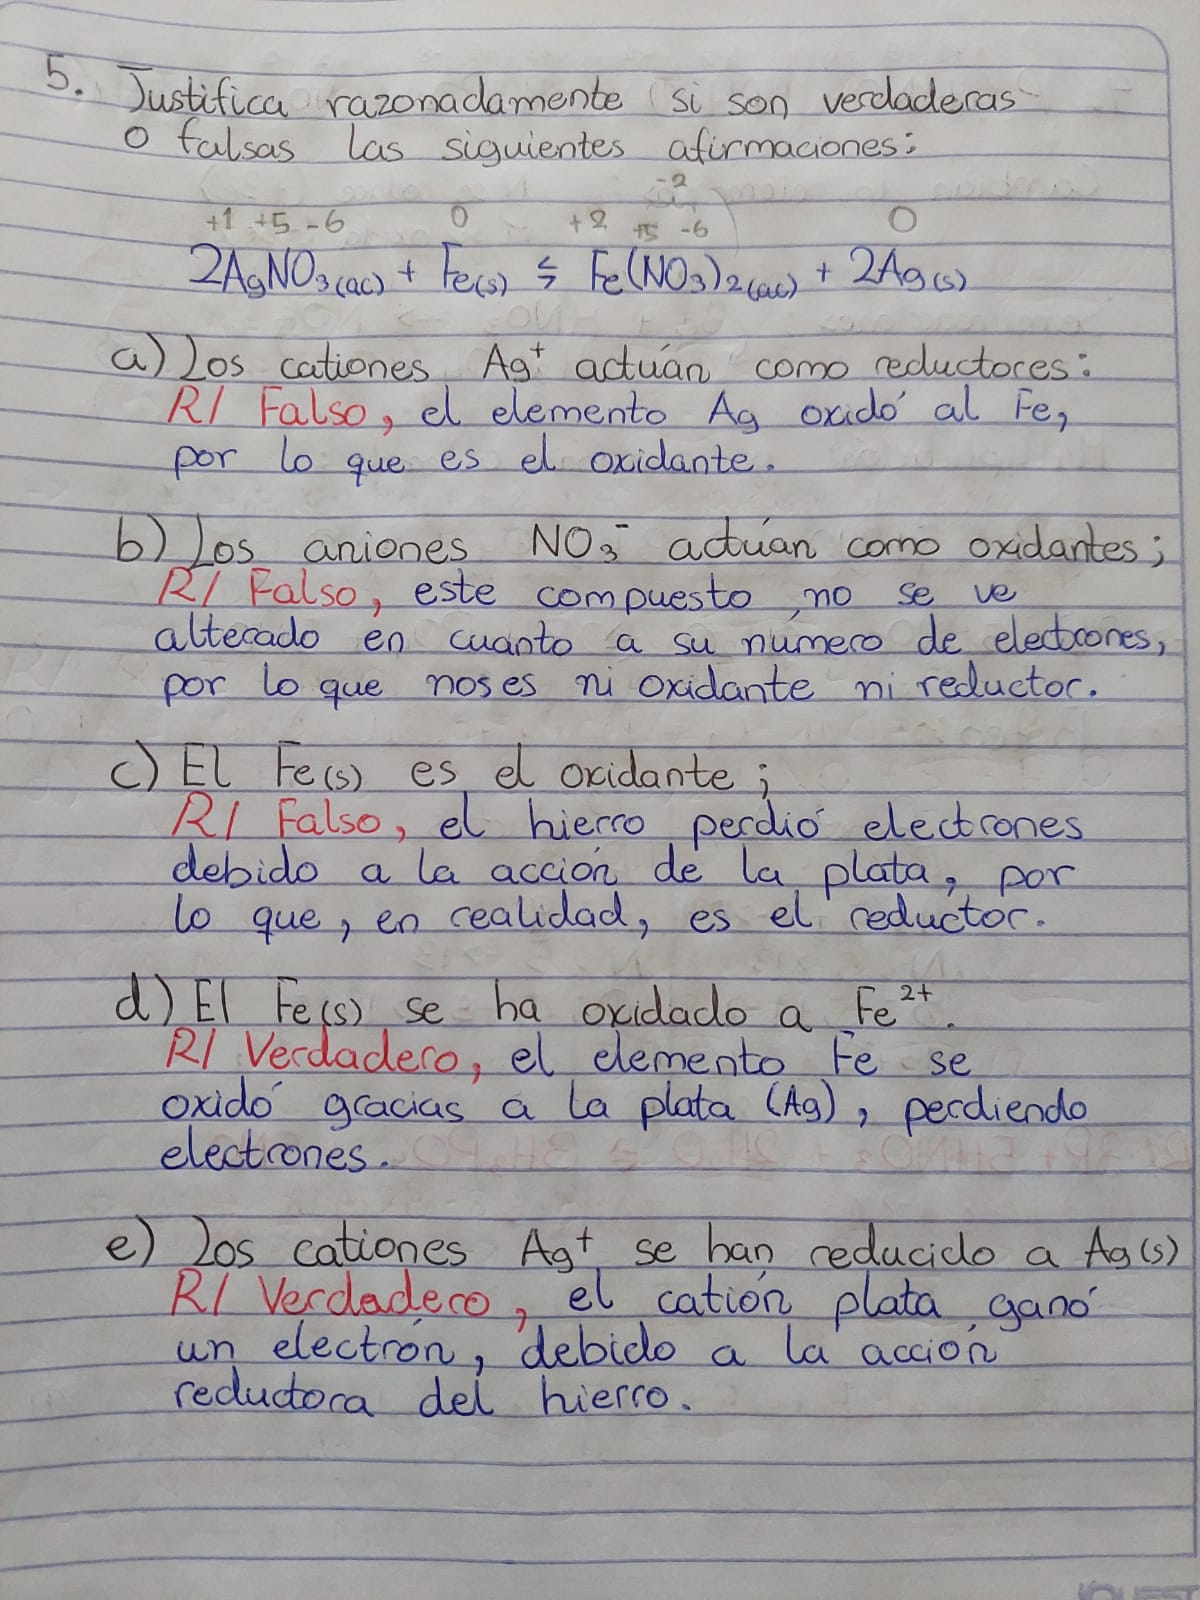 5. Justifica razonadamente si son verdaderas
o falsas las siguientes afirmaciones:
-2
+1 +5 -6 0 +2 +5 -6 0
2AgNO₃(ac) + Fe(s) ⇆ Fe(NO₃)₂(ac) + 2Ag(s)
a) Los cationes Ag⁺ actuán como reductores:
R/ Falso, el elemento Ag oxidó al Fe,
por lo que es el oxidante.
b) Los aniones NO₃⁻ actuán como oxidantes;
R/ Falso, este compuesto no se ve
alterado en cuanto a su número de electrones,
por lo que nos es ni oxidante ni reductor.
c) El Fe(s) es el oxidante;
R/ Falso, el hierro perdió electrones
debido a la acción de la plata, por
lo que, en realidad, es el reductor.
d) El Fe(s) se ha oxidado a Fe²⁺.
R/ Verdadero, el elemento Fe se
oxidó gracias a la plata (Ag), perdiendo
electrones.
e) Los cationes Ag⁺ se han reducido a Ag(s)
R/ Verdadero, el catión plata ganó
un electrón, debido a la acción
reductora del hierro.